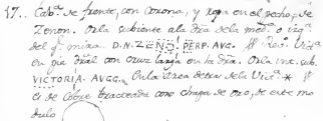 17.. Cab.ª de frente, con Corona, y ropa en el pecho, de
Zenon. Orla subiente a la dra de la med.ª o izq.ª
del q.e mira D.N. ZENO. PERP. AVG. Rev. Vict.ª
en pie con cruz larga en la Dra. Orla inc. sub.
VICTORIA. AVGG. En la area detras de la Vict.ª *
Es de Cobre con chapa de Oro, de este mo
dulo